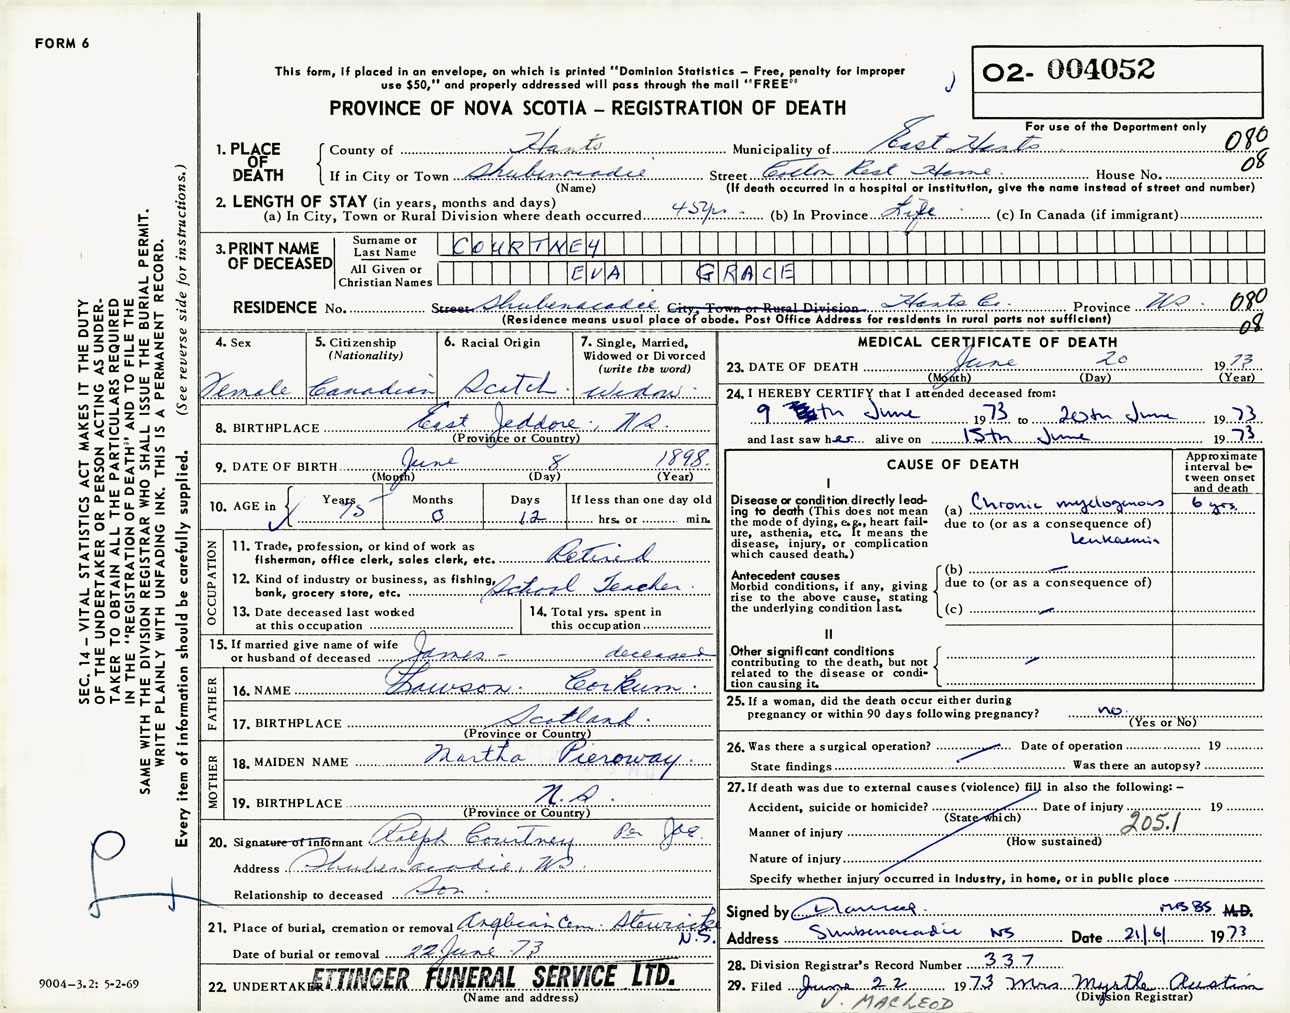 FORM 6
This form, if placed in an envelope, on which is printed "Dominion Statistics – Free, penalty for improper
use $50," and properly addressed will pass through the mail "FREE"
PROVINCE OF NOVA SCOTIA – REGISTRATION OF DEATH
O2- 004052
For use of the Department only
080
08
1. PLACE OF DEATH
County of Hants Municipality of East Hants
If in City or Town Shubenacadie Street Rest Home. House No.
(Name) (If death occurred in a hospital or institution, give the name instead of street and number)
2. LENGTH OF STAY (in years, months and days)
(a) In City, Town or Rural Division where death occurred 45 yrs. (b) In Province Life (c) In Canada (if immigrant)
3. PRINT NAME OF DECEASED
Surname or Last Name COURTNEY
All Given or Christian Names EVA GRACE
RESIDENCE No. Street Shubenacadie City, Town or Rural Division Hants Co. Province NS 080
(Residence means usual place of abode. Post Office Address for residents in rural parts not sufficient) 08
4. Sex Female
5. Citizenship (Nationality) Canadian
6. Racial Origin Scotch
7. Single, Married, Widowed or Divorced (write the word) Widow
8. BIRTHPLACE East Jeddore, NS.
(Province or Country)
9. DATE OF BIRTH June 8 1898.
(Month) (Day) (Year)
10. AGE in Years 75 Months 0 Days 12 If less than one day old hrs. or min.
OCCUPATION
11. Trade, profession, or kind of work as
fisherman, office clerk, sales clerk, etc. Retired
12. Kind of industry or business, as fishing,
bank, grocery store, etc. School Teacher
13. Date deceased last worked
at this occupation
14. Total yrs. spent in
this occupation
15. If married give name of wife
or husband of deceased James – deceased
FATHER
16. NAME Lawson Corkum
17. BIRTHPLACE Scotland.
(Province or Country)
MOTHER
18. MAIDEN NAME Martha Pieroway
19. BIRTHPLACE N.S.
(Province or Country)
20. Signature of informant Ralph Courtney Per
Address Shubenacadie, NS
Relationship to deceased Son.
21. Place of burial, cremation or removal Anglican Cem. Stewiacke
N.S.
Date of burial or removal 22 June 73
22. UNDERTAKER ETTINGER FUNERAL SERVICE LTD.
(Name and address)
MEDICAL CERTIFICATE OF DEATH
23. DATE OF DEATH June 20 1973
(Month) (Day) (Year)
24. I HEREBY CERTIFY that I attended deceased from:
9 th June 1973 to 20th June 1973
and last saw her alive on 15th June 1973
CAUSE OF DEATH
Approximate interval between onset and death
I
Disease or condition directly leading to death (This does not mean
the mode of dying, e.g., heart failure, asthenia, etc. It means the
disease, injury, or complication
which caused death.)
(a) Chronic myelogenous 6 yrs.
due to (or as a consequence of)
leukaemia
Antecedent causes
Morbid conditions, if any, giving
rise to the above cause, stating
the underlying condition last.
(b) –
due to (or as a consequence of)
(c) –
II
Other significant conditions
contributing to the death, but not
related to the disease or condition causing it.
25. If a woman, did the death occur either during
pregnancy or within 90 days following pregnancy? no.
(Yes or No)
26. Was there a surgical operation? Date of operation 19
State findings Was there an autopsy?
27. If death was due to external causes (violence) fill in also the following: –
Accident, suicide or homicide? Date of injury 19
(State which)
Manner of injury 205.1
(How sustained)
Nature of injury
Specify whether injury occurred in industry, in home, or in public place
Signed by MBBS M.D.
Address Shubenacadie NS Date 21/6/ 1973
28. Division Registrar's Record Number 337
29. Filed June 22 1973 Mrs Myrtle Austin
(Division Registrar)
J. MACLEOD
SEC. 14 – VITAL STATISTICS ACT MAKES IT THE DUTY
OF THE UNDERTAKER OR PERSON ACTING AS UNDERTAKER TO OBTAIN ALL THE PARTICULARS REQUIRED
IN THE "REGISTRATION OF DEATH" AND TO FILE THE
SAME WITH THE DIVISION REGISTRAR WHO SHALL ISSUE THE BURIAL PERMIT.
WRITE PLAINLY WITH UNFADING INK. THIS IS A PERMANENT RECORD.
Every item of information should be carefully supplied. (See reverse side for instructions.)
9004–3.2: 5-2-69